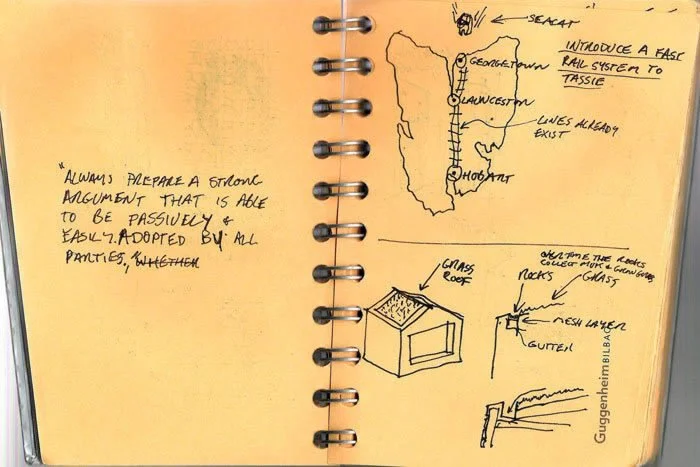 "ALWAYS PREPARE A STRONG
ARGUMENT THAT IS ABLE
TO BE PASSIVELY &
EASILY ADOPTED BY ALL
PARTIES," WHETHER
SEACAT
INTRODUCE A FAST
RAIL SYSTEM TO
TASSIE
GEORGETOWN
LAUNCESTON
LINES ALREADY
EXIST
HOBART
GRASS
ROOF
OVER TIME THE ROCKS
COLLECT MUK & GROW
ROCKS
GRASS
MESH LAYER
GUTTER
GuggenheimBILBAO